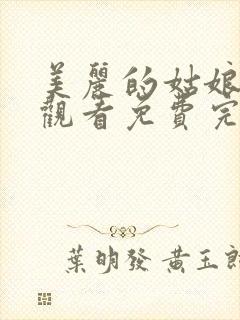 美麗的姑娘
觀看免費完
葉明發 黃玉郎